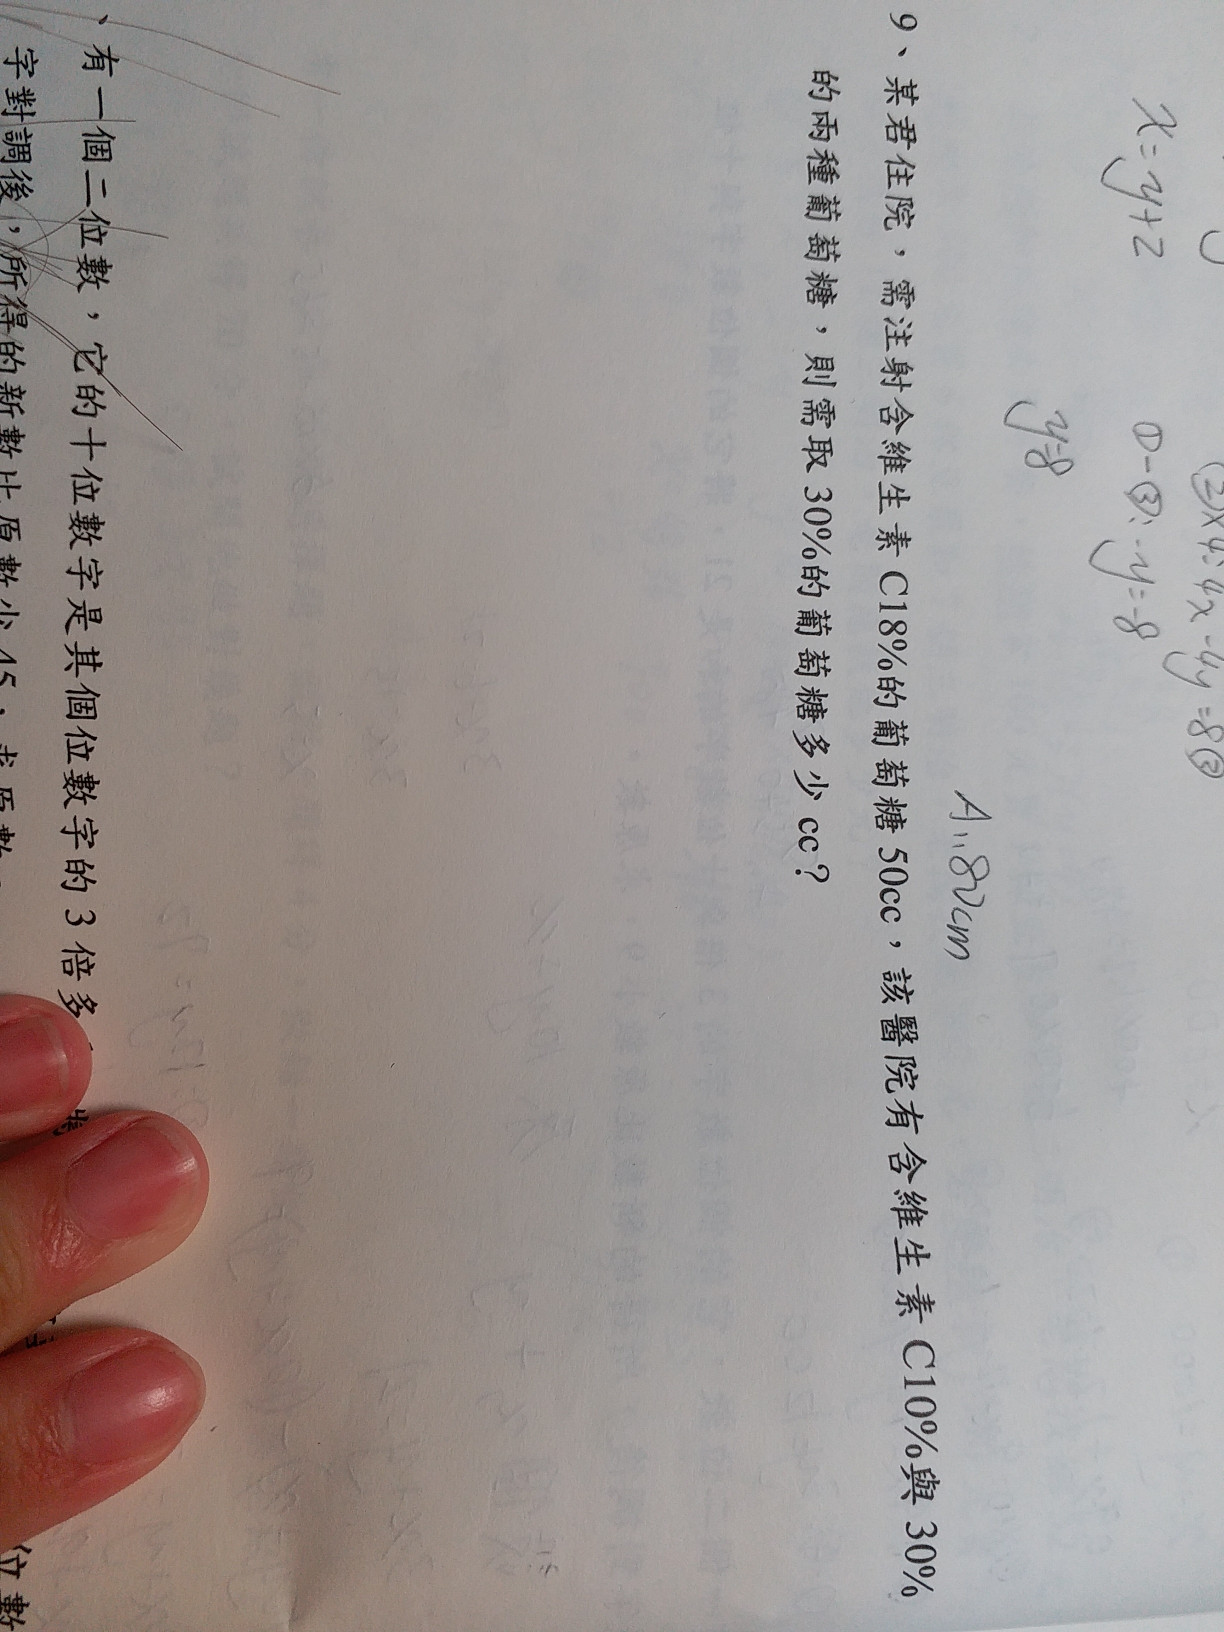 ②×4:4x-4y=8③
x=y+2
①-③:-y=-8
y=8
A:80cm
9、某君住院，需注射含維生素C18%的葡萄糖50cc，該醫院有含維生素C10%與30%
的兩種葡萄糖，則需取30%的葡萄糖多少cc？
、有一個二位數，它的十位數字是其個位數字的3倍多
字對調後，所得的新數比原數少45，求原數。
位數